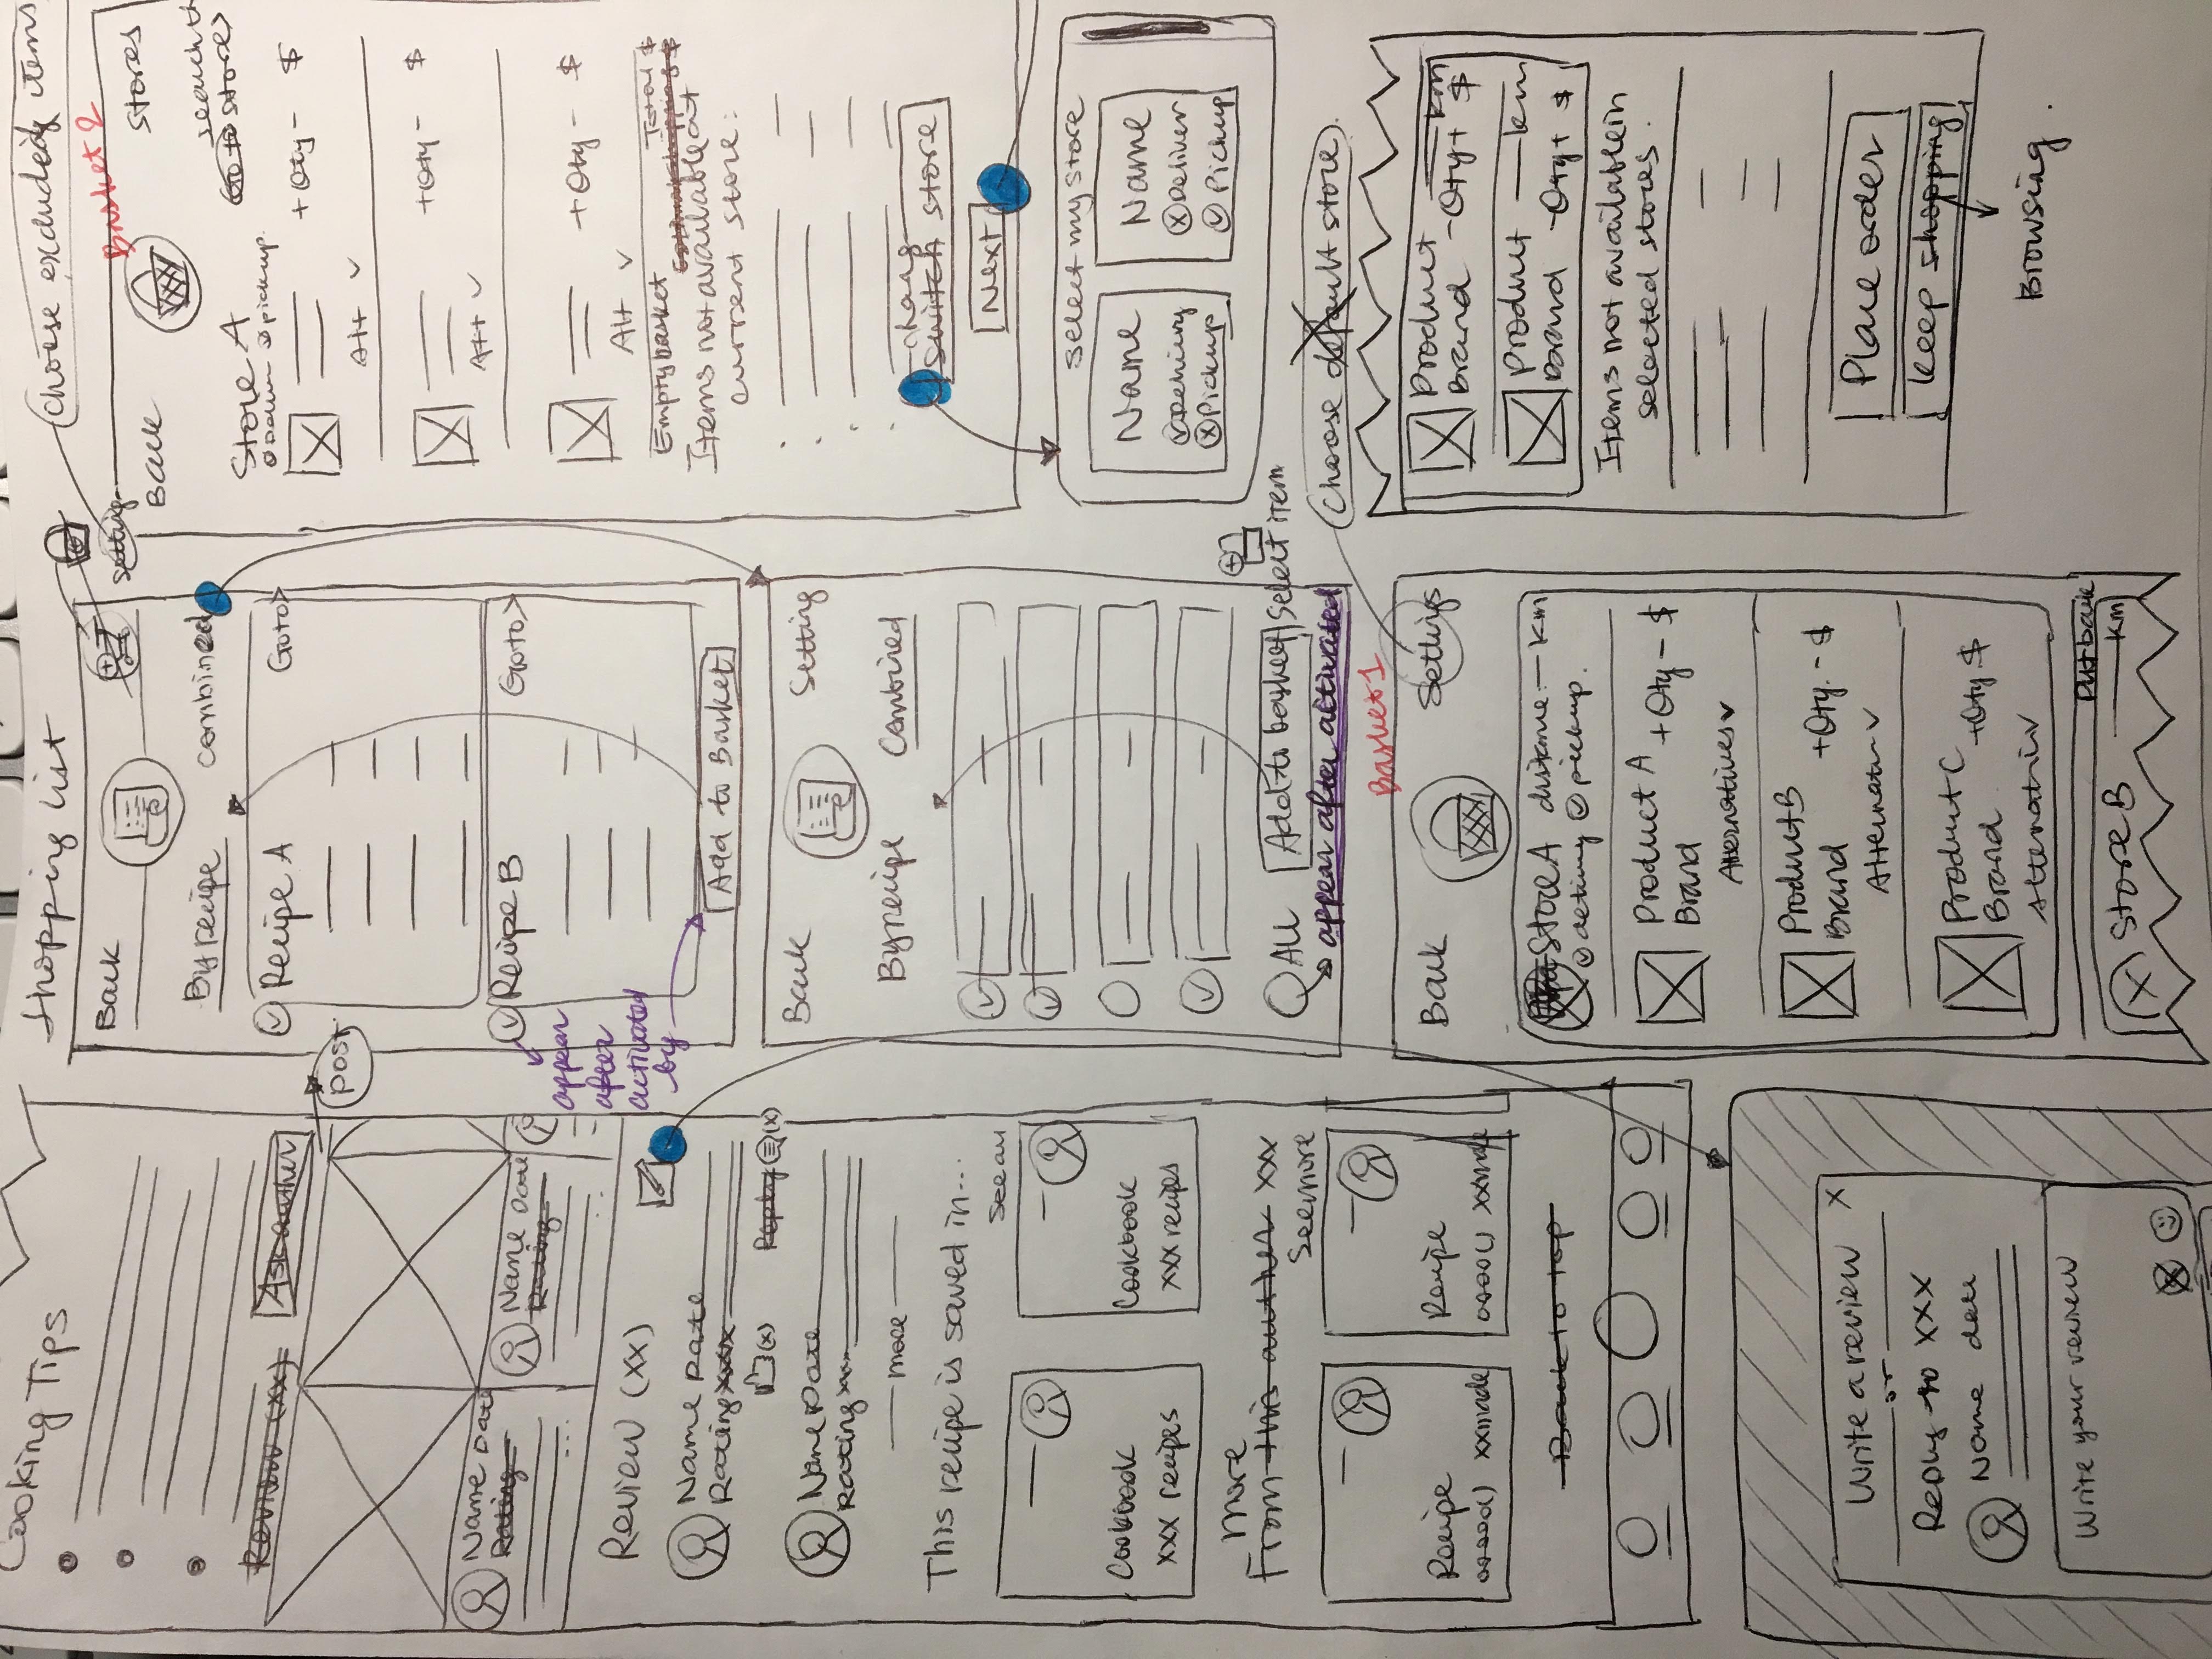 Cooking Tips
Review (xx)
Ask author
post
Name Date
Rating
Name Date
Rating
Review (xx)
Name Date
Rating xxx
(x)
Reply (x)
Name Date
Rating xx
more
This recipe is saved in...
See all
Cookbook
xxx recipes
Cookbook
xxx recipes
More
From this auther xxx
See more
Recipe
xxmade
Recipe
xxmade
Back to top
Write a review X
or
Reply to XXX
Name date
Write your review
Shopping list
Back
By recipe combined
Recipe A Go to >
Recipe B Go to >
appear
after
activated
by
Add to Basket
Back Setting
By recipe Combined
ALL Add to basket Select item
appear after activated
Basket 1
Back Settings
Store A distance — km
delivery pickup.
Product A + Qty - $
Brand
Alternatives
Product B + Qty. - $
Brand
Product C + Qty $
Brand
Put back
Store B km
Choose excluded items
Setting
Basket 2
Back Stores
search th
Store A Go to store >
pickup.
+ Qty - $
Alt
+ Qty - $
Alt
+ Qty - $
Alt
Empty basket Total $
Items not available at
current store:
Chang
Switch store
Next
Select my store
Name
Delivery
Pickup
Name
Deliver
Pickup
Choose default store
Product km
Brand - Qty + $
Product km
Brand - Qty + $
Items not available in
selected stores.
Place order
keep shopping
Browsing.